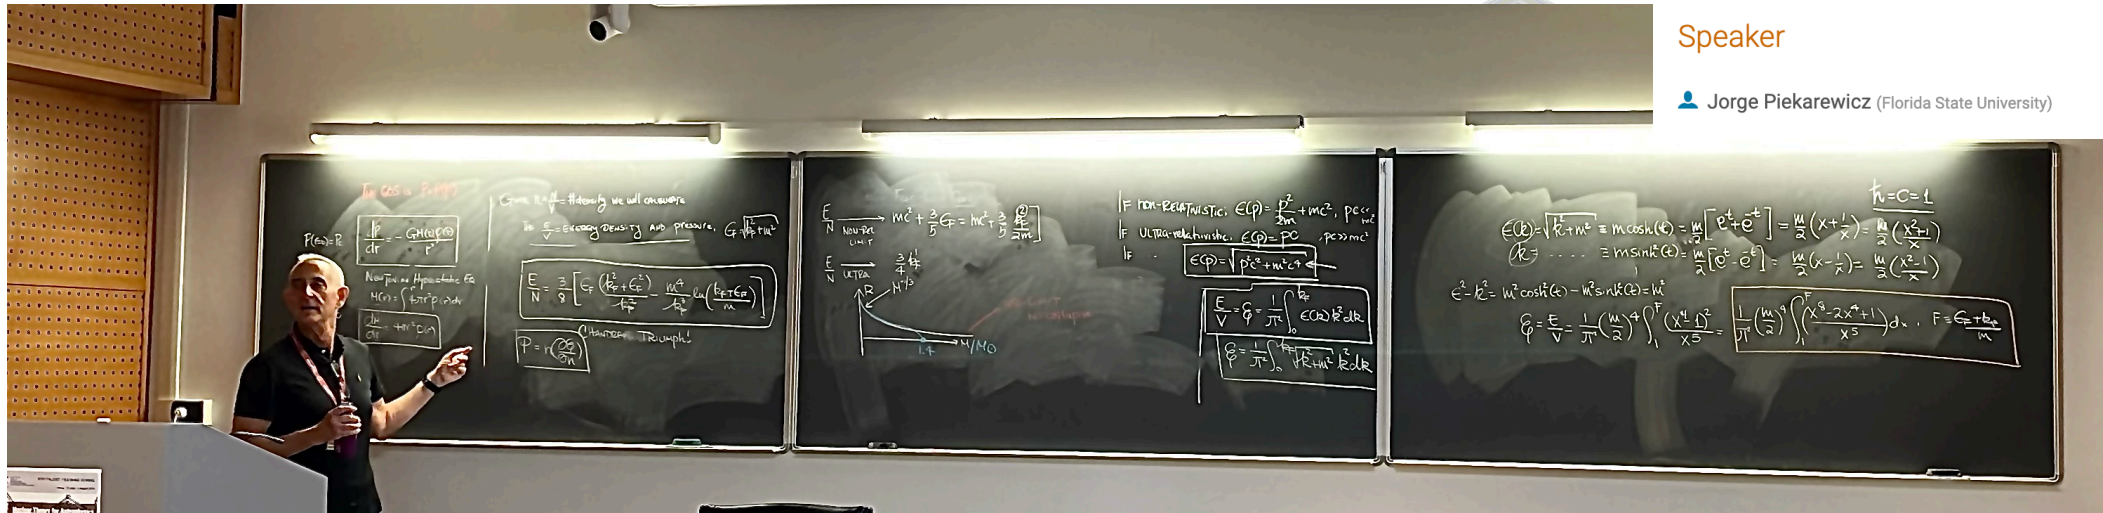 Speaker
Jorge Piekarewicz (Florida State University)
THE EOS IS
dP/dr = - GM(r)ρ(r)/r²
NEWTONIAN HYDROSTATIC EQ
M(r) = ∫ 4πr²ρ(r)dr
dM/dr = 4πr²ρ(r)
we will calculate
THE E/V = ENERGY DENSITY AND pressure.
E/N = 3/8 [ϵF (kF²+ϵF²)/kF² - m⁴/kF³ ln(kF+ϵF/m)]
P = n²(∂/∂n)
CHANDRA TRIUMPH!
E/N → NON-REL LIMIT mc² + 3/5 ϵF = mc² + 3/5 kF²/2m
E/N → ULTRA 3/4 kF
R
M^-1/3
1.4
M/M⊙
IF NON-RELATIVISTIC, ϵ(p) = p²/2m + mc², pc<<mc²
IF ULTRA-relativistic, ϵ(p) = pc, pc>>mc²
IF
ϵ(p) = √p²c²+m²c⁴
E/V = ℰ = 1/π² ∫₀^kF ϵ(k)k²dk
ℰ = 1/π² ∫₀^kF √k²+m² k²dk
ħ=c=1
ϵ(k) = √k²+m² ≡ m cosh(t) = m/2 [e^t+e^-t] = m/2 (x+1/x) = m/2 (x²+1/x)
k = .... ≡ m sinh(t) = m/2 [e^t-e^-t] = m/2 (x-1/x) = m/2 (x²-1/x)
ϵ²-k² = m²cosh²(t) - m²sinh²(t) = m²
ℰ = E/V = 1/π² (m/2)⁴ ∫₁^F (x⁴-1)²/x⁵ = 1/π² (m/2)⁴ ∫₁^F (x⁸-2x⁴+1/x⁵)dx, F = ϵF+kF/m